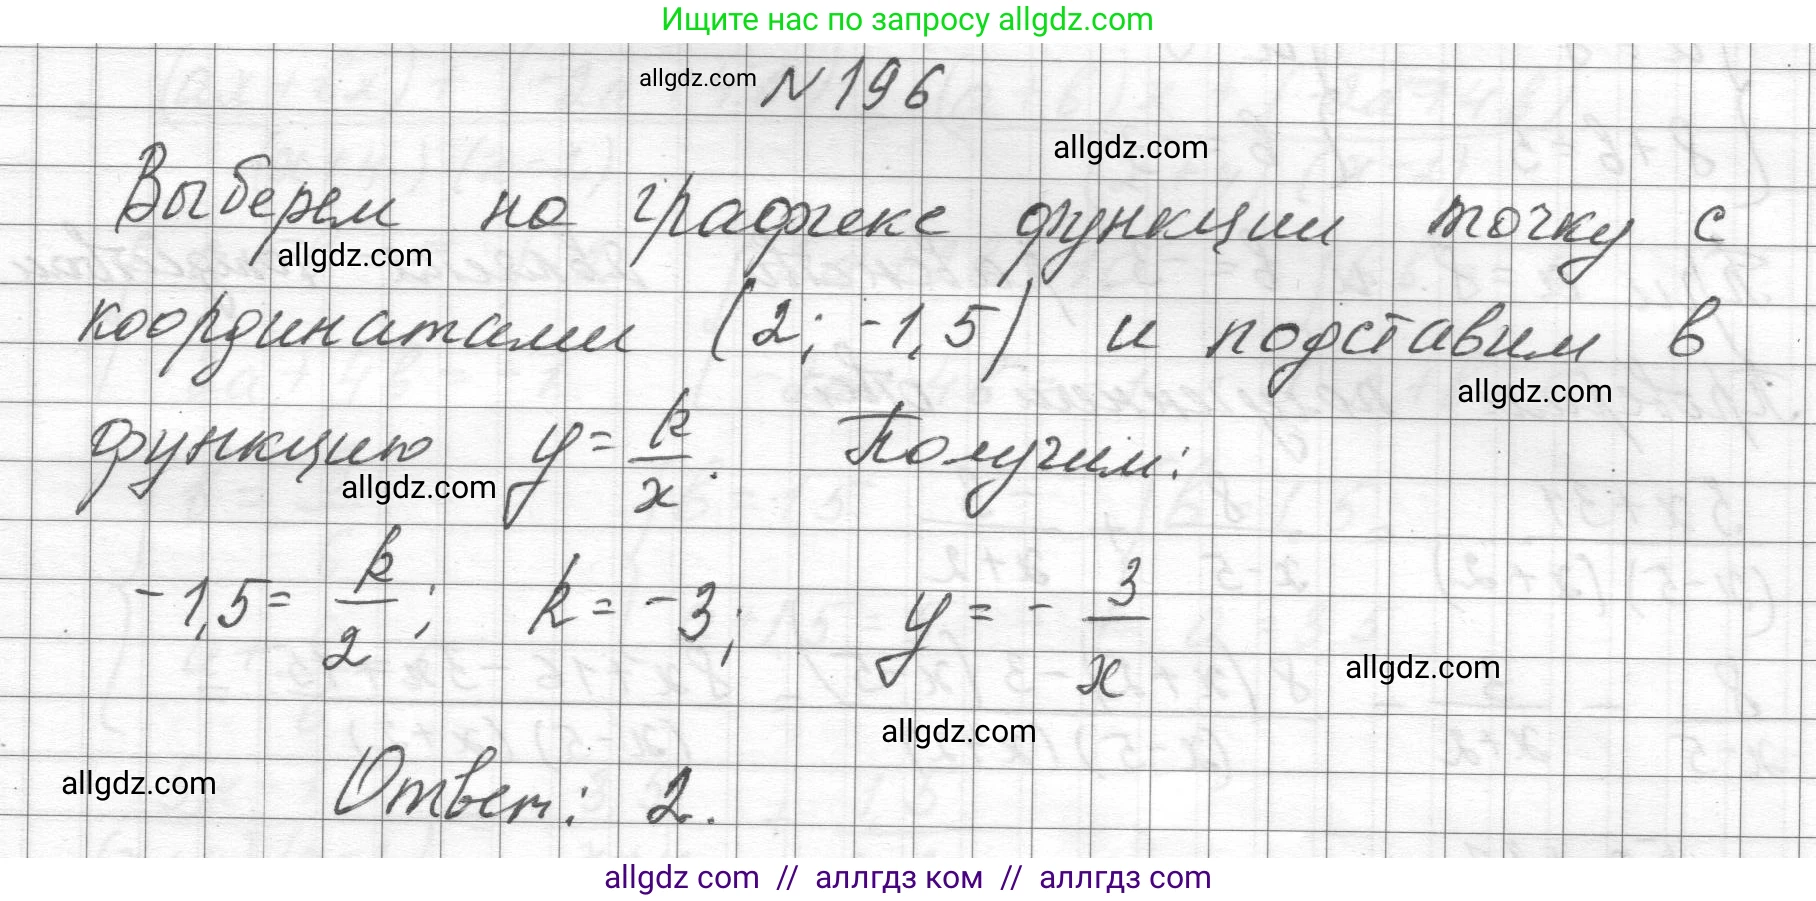 Ищите нас по запросу allgdz.com
allgdz.com № 196
allgdz.com
Выберем на графике функции точку с
allgdz.com
координатами (2; -1,5) и подставим в
allgdz.com
функцию y = k/x. Получим:
allgdz.com
-1,5 = k/2; k = -3; y = - 3/x
allgdz.com
allgdz.com
allgdz.com
Ответ: 2.
allgdz com // аллгдз ком // аллгдз com